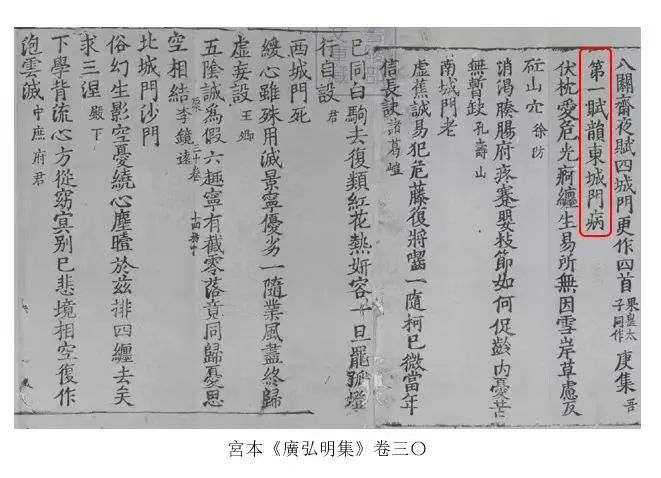 八關齋夜賦四城門更作四首 梁皇太子同作 庾集 吾
第一賦韻東城門病
伏枕愛危光痾纏生易所無因雪岸草慮反
山宂 徐防
消渴腠腸府疼蹇嬰枝節如何促齡內憂苦
無暫缺 孔壽山
南城門老
虛蕉誠易犯危藤復將囓一隨柯已微當年
信長訣 諸葛嵦
已同白駒去復類紅花熱妍容一旦罷孤燈
行自設 君
西城門死
緩心雖殊用滅景寧優劣一隨業風盡終歸
虛妄設 王卿
五陰誠為假六趣寧有截零落竟同歸憂思
空相結 李鏡遠
三十卷
北城門沙門
俗幻生影空憂繞心塵曀於茲排四纏去矣
求三涅 殿下
下學背流心方從窈冥别已悲境相空復作
泡雲滅 中庶府君
宮本《廣弘明集》卷三〇